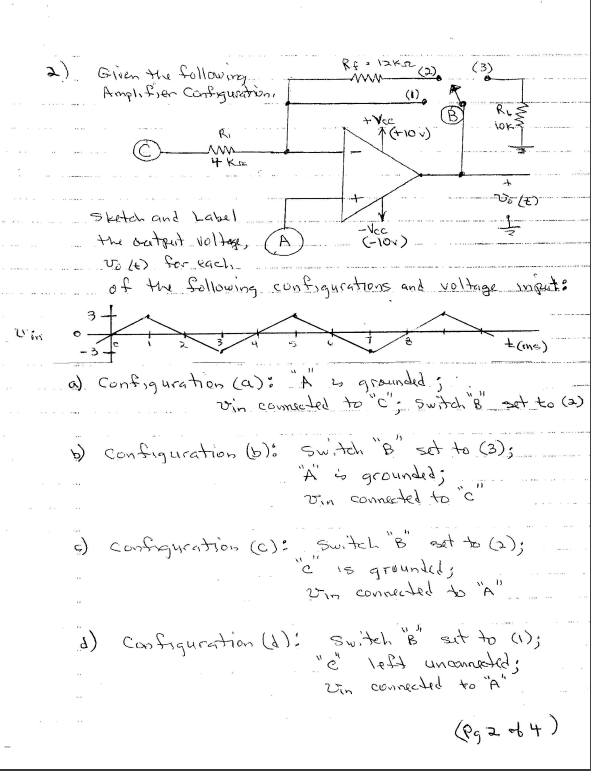 2) Given the following
Amplifier Configuration.
Rf = 12KΩ (2) (3)
(1)
B
RL
10K
+Vcc
(+10v)
R1
4KΩ
C
−
+
-Vcc
(-10v)
A
+
vo(t)
Sketch and Label
the output voltage,
vo(t) for each
of the following configurations and voltage input:
vin 3 0 -3
0 1 2 3 4 5 6 7 8 t(ms)
a) Configuration (a): "A" is grounded;
vin connected to "C"; Switch "B" set to (2)
b) Configuration (b): Switch "B" set to (3);
"A" is grounded;
vin connected to "C"
c) Configuration (c): Switch "B" set to (2);
"C" is grounded;
vin connected to "A"
d) Configuration (d): Switch "B" set to (1);
"C" left unconnected;
vin connected to "A"
(Pg 2 of 4)